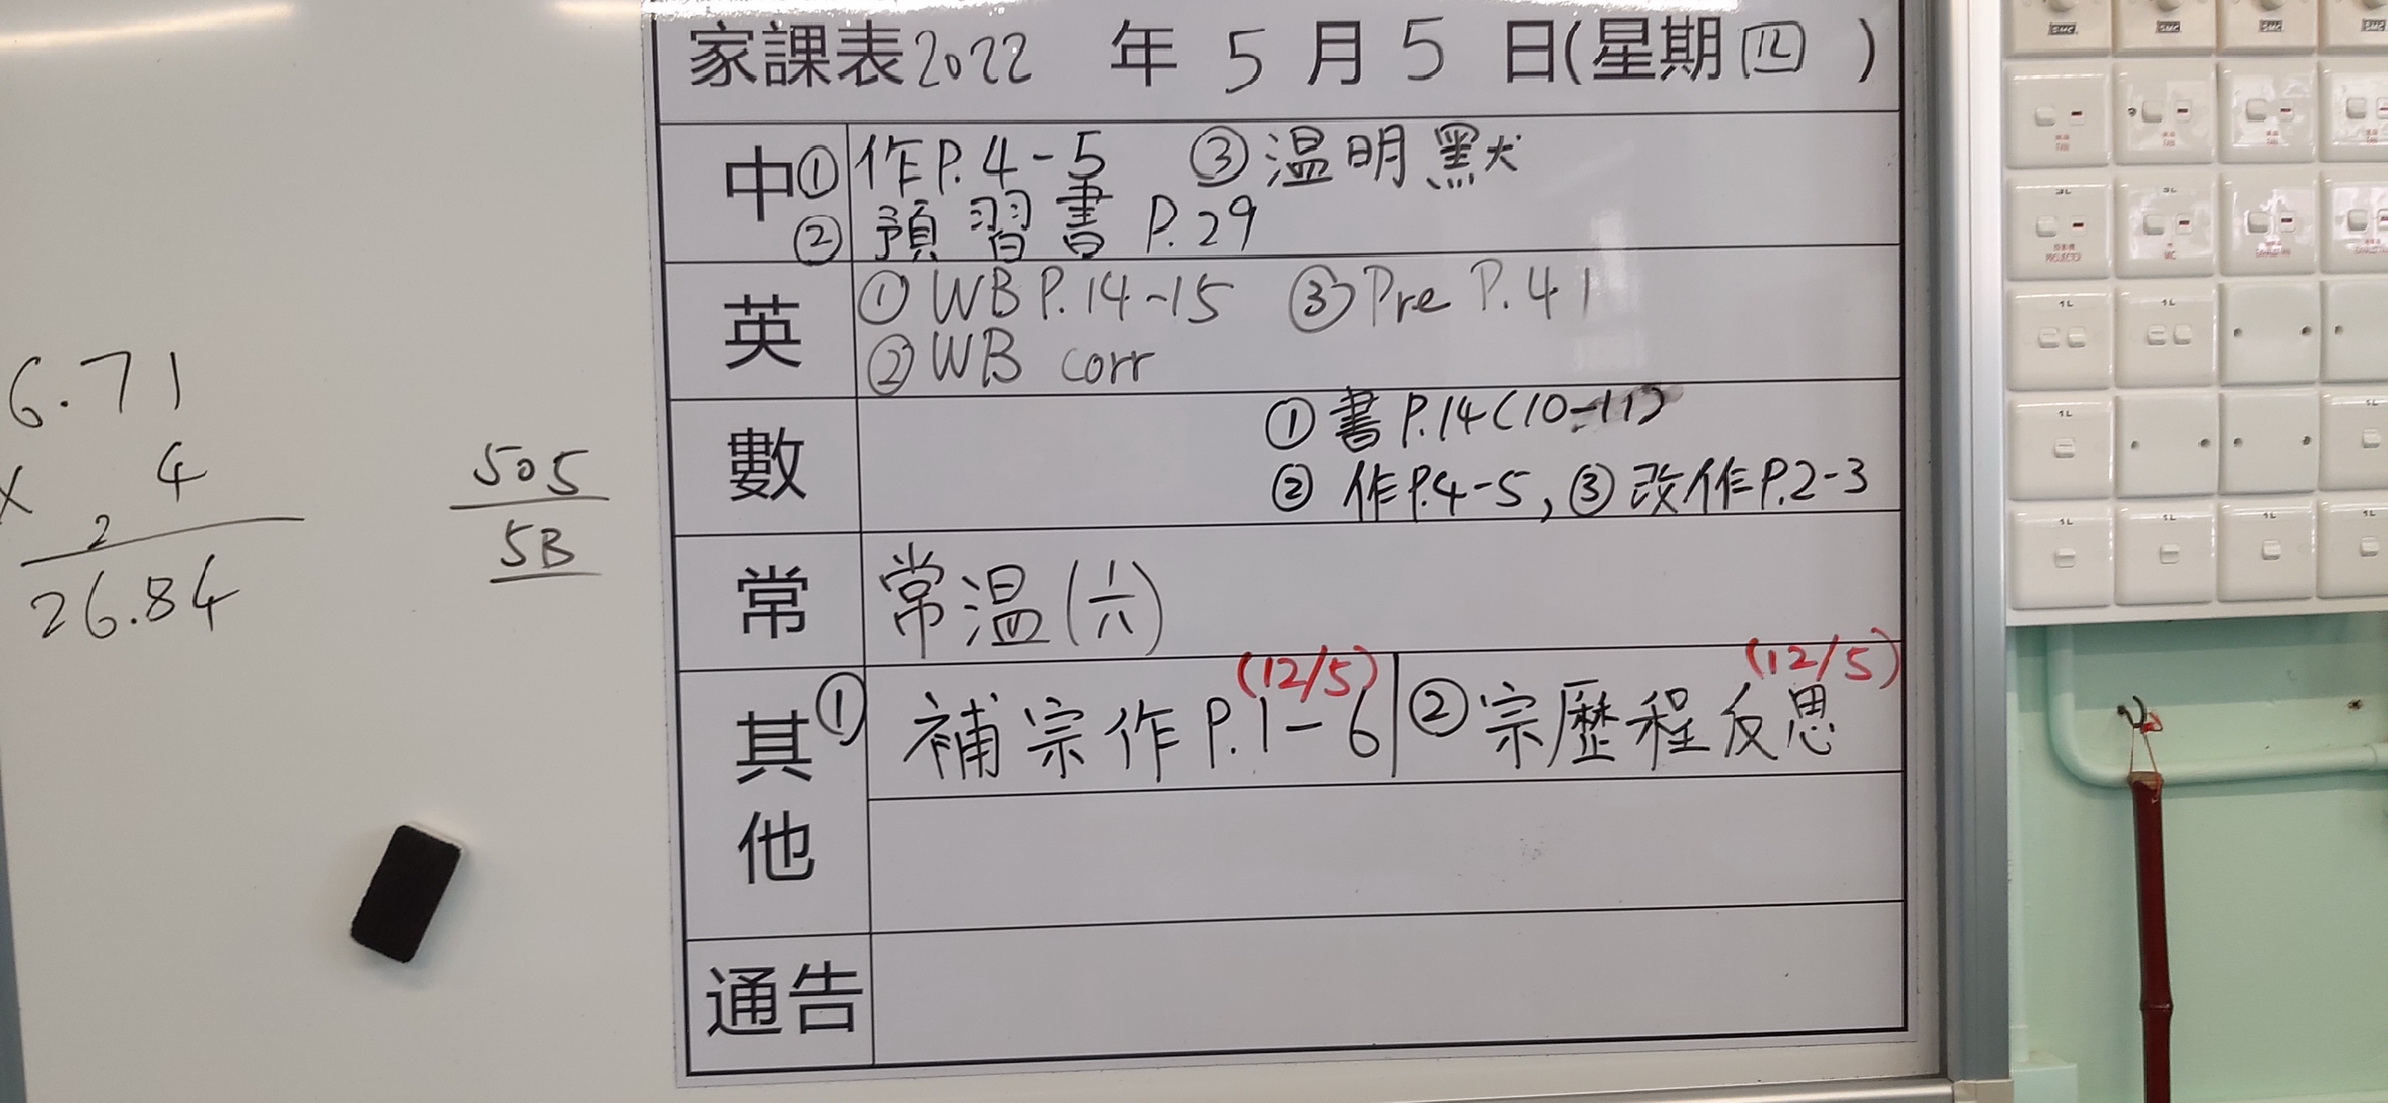 家課表2022 年 5 月 5 日(星期四 )
中① 作P.4-5 ③温明默
② 預習書 P.29
英 ① WB P.14-15 ③Pre P.41
② WB corr
數 ① 書P.14(10-11)
② 作P.4-5, ③ 改作P.2-3
常 常温(六)
(12/5) (12/5)
其他 ① 補宗作P.1-6 ② 宗歷程反思
通告
6.71
x 4
2
26.84
505
5B